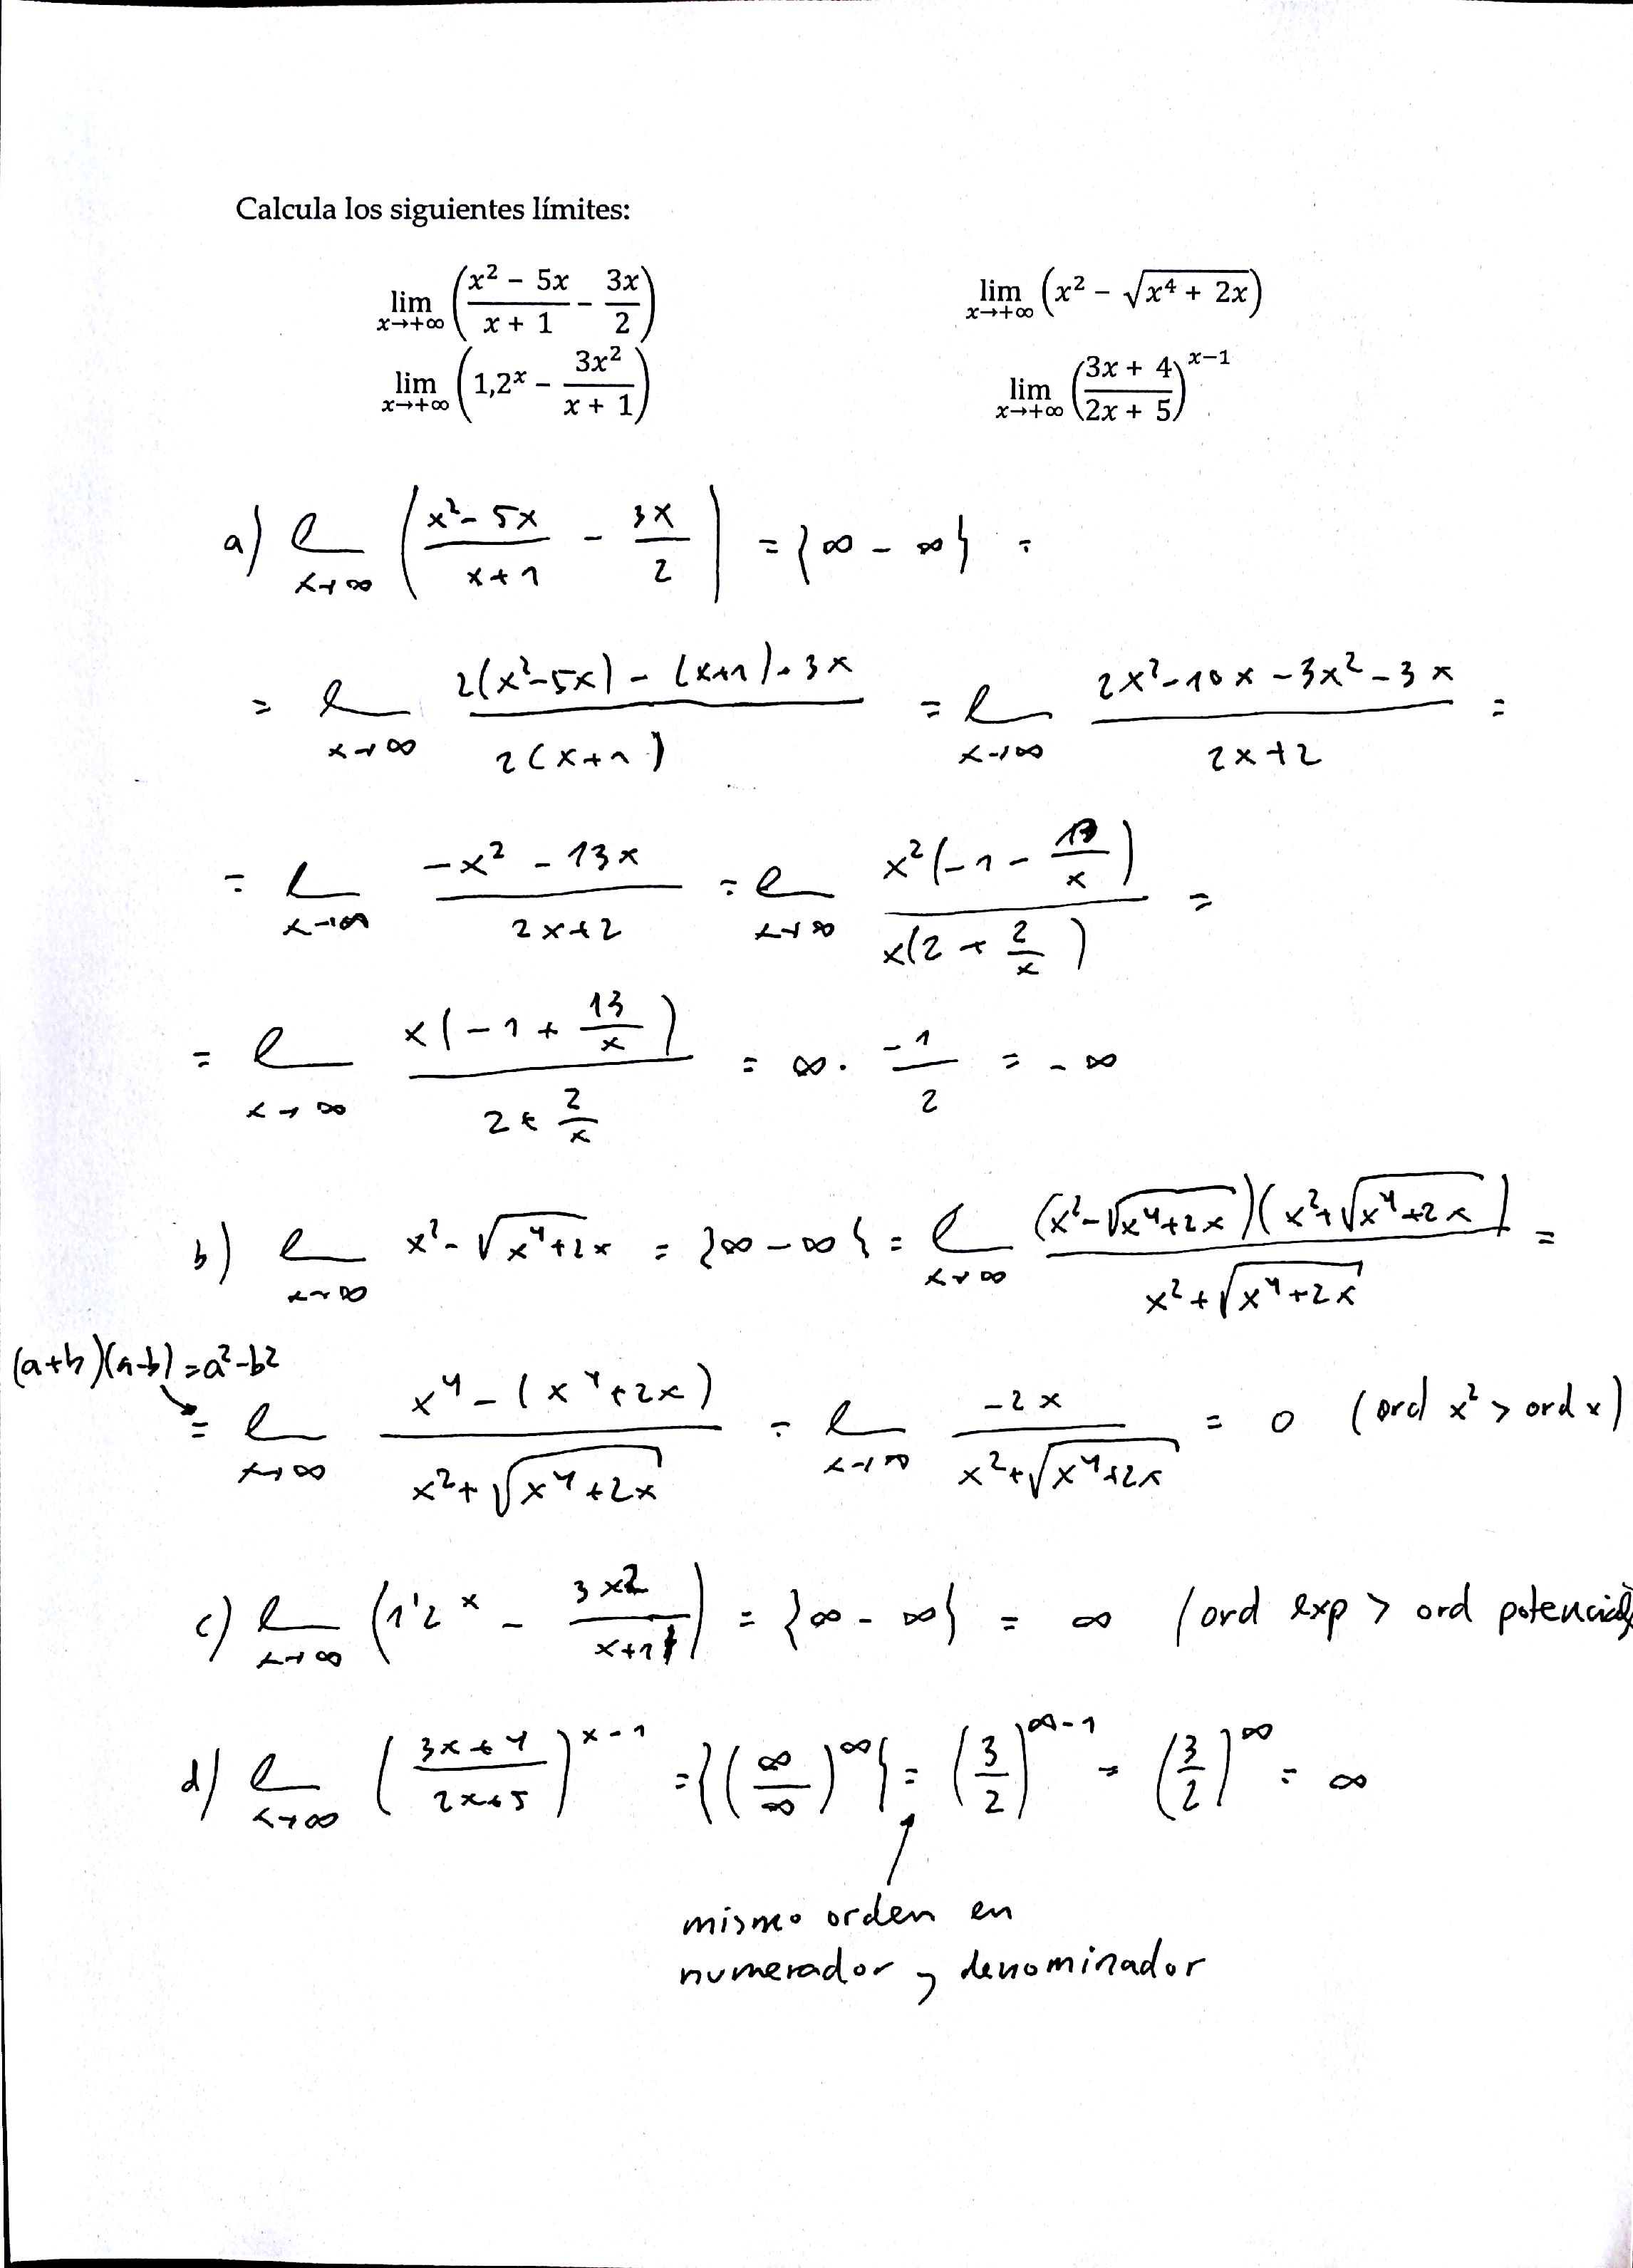 Calcula los siguientes límites:
lim x→+∞ ( (x² − 5x)/(x + 1) − 3x/2 )    lim x→+∞ ( x² − √(x⁴ + 2x) )
lim x→+∞ ( 1,2ˣ − 3x²/(x + 1) )    lim x→+∞ ( (3x + 4)/(2x + 5) )ˣ⁻¹
a) l x→∞ ( (x² − 5x)/(x+1) − 3x/2 ) = {∞ − ∞} =
= l x→∞ (2(x²−5x) − (x+1)·3x)/(2(x+1)) = l x→∞ (2x²−10x−3x²−3x)/(2x+2) =
= l x→∞ (−x² − 13x)/(2x+2) = l x→∞ (x²(−1 − 13/x))/(x(2 + 2/x)) =
= l x→∞ (x(−1 + 13/x))/(2 + 2/x) = ∞ · −1/2 = −∞
b) l x→∞ x² − √(x⁴+2x) = {∞ − ∞} = l x→∞ ((x²−√(x⁴+2x))(x²+√(x⁴+2x)))/(x²+√(x⁴+2x)) =
(a+b)(a-b)=a²-b²
= l x→∞ (x⁴ − (x⁴+2x))/(x²+√(x⁴+2x)) = l x→∞ (−2x)/(x²+√(x⁴+2x)) = 0 (ord x² > ord x)
c) l x→∞ (1'2ˣ − 3x²/(x+1)) = {∞ − ∞} = ∞ (ord exp > ord potencial
d) l x→∞ ((3x+4)/(2x+5))ˣ⁻¹ = {(∞/∞)^∞} = (3/2)^(∞−1) = (3/2)^∞ = ∞
mismo orden en
numerador y denominador